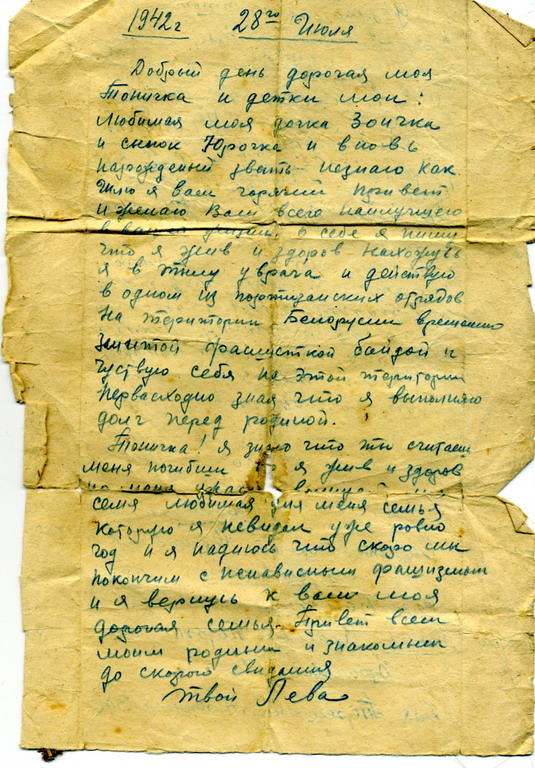 1942 г 28го Июля
Добрый день дорогая моя
Тоничка и детки мои:
Любимая моя дочка Зоичка
и сынок Юрочка и вновь
нарожденый звать незнаю как.
Шлю я вам горячий привет
и желаю Вам всего наилучшего
в вашей жизни. о себе я пишу
что я жив и здоров нахожусь
я в тылу у врача и действую
в одном из портизанских отрядов
на територии Белорусии временно
занитой фашисткой бандой и
чуствую себя на этой територии
первасходно зная что я выполняю
долг перед родиной.
Тоничка! я знаю что ты считаеш
меня погибшим я жив и здоров
но меня
семя любимая для меня семья
которую я невидал уже ровно
год и я надиюсь что скоро мы
покончим с ненависным фашизмом
и я вернусь к вам моя
дорогая семья. Привет всем
моим родным и знакомым
до скорого свидания
твой Лева